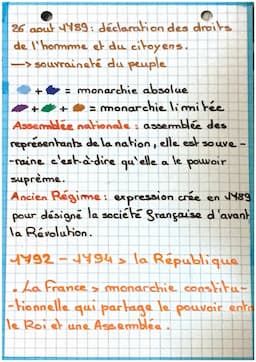 26 aout 1789 : déclaration des droits
de l'homme et du citoyens.
—> souvraineté du peuple
+ = monarchie absolue
+ + = monarchie limitée
Assemblée nationale : assemblée des
représentants de la nation, elle est souve-
-raine c'est-à-dire qu'elle a le pouvoir
suprème.
Ancien Régime : expression crée en 1789
pour désigné la société française d'avant
la Révolution.
1792 - 1794 > la République
. La france > monarchie constitu-
-tionnelle qui partage le pouvoir entre
le Roi et une Assemblée.